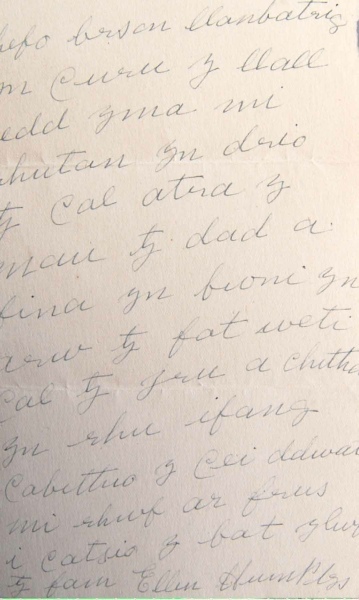 hefo brson llanbatrig
m Curu y llall
edd yma mi
hutan yn drio
ty Cal atra y
mau ty dad a
fina yn bioni yn
arw ty fat weti
Cal ty gru a chitha
yn rhu ifang
Cabuttuo y Cei ddwad
mi rhwf ar frus
i Catsio y bat
ty fam Ellen Humphys